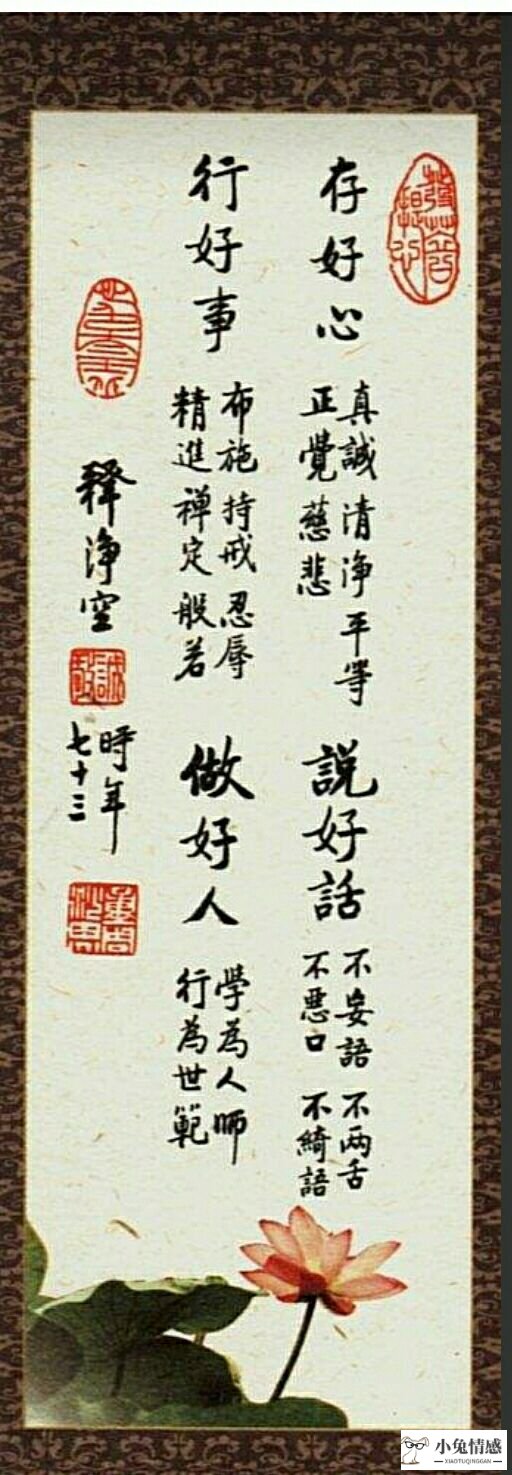 存好心
真誠清淨平等
正覺慈悲
說好話
不妄語 不两舌
不惡口 不綺語
行好事
布施持戒忍辱
精進禅定般若
做好人
學為人師
行為世範
釋淨空
時年
七十三
小兔情感
XIAOTUQINGGAN